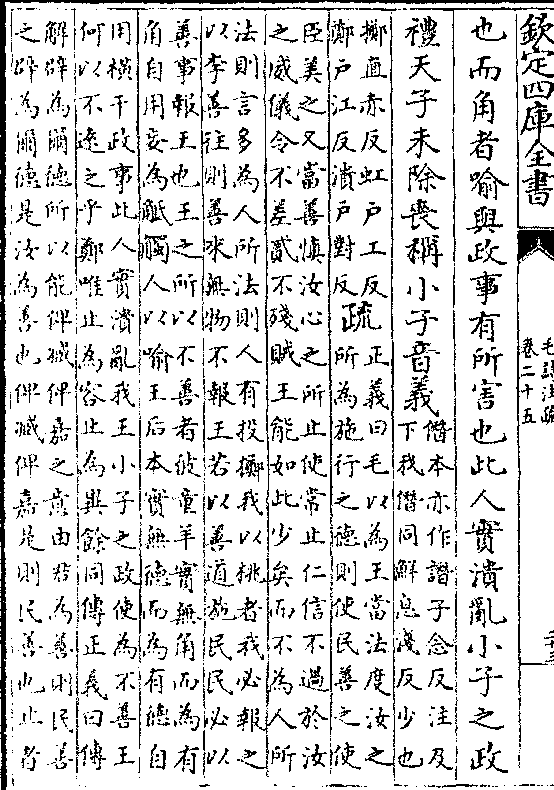 欽定四庫全書
毛詩注疏
卷二十五
也而角者喻與政事有所害也此人實潰亂小子之政
禮天子未除喪稱小子音義
僭本亦作譖子念反注及
下我僭同鮮息淺反少也
擲直赤反虹戶工反
鄭戶江反潰戶對反
疏
正義曰毛以為王當法度汝之
所為施行之德則使民善之使
臣美之又當善慎汝心之所止使常止仁信不過於汝
之威儀令不差貳不殘賊王能如此少矣而不為人所
法則言多為人所法則人有投擲我以桃者我必報之
以李善往則善來無物不報王若以善道施民民必以
善事報王也王之所以不善者彼童羊實無角而為有
角自用妄為觝觸人以喻王后本實無德而為有德自
用橫干政事此人實潰亂我王小子之政使為不善王
何以不遠之乎鄭唯止為容止為異餘同傳正義曰傳
解辟為爾德所以能俾臧俾嘉之意由君為善則民善
之辟為爾德是汝為善也俾臧俾嘉是則民善也止者